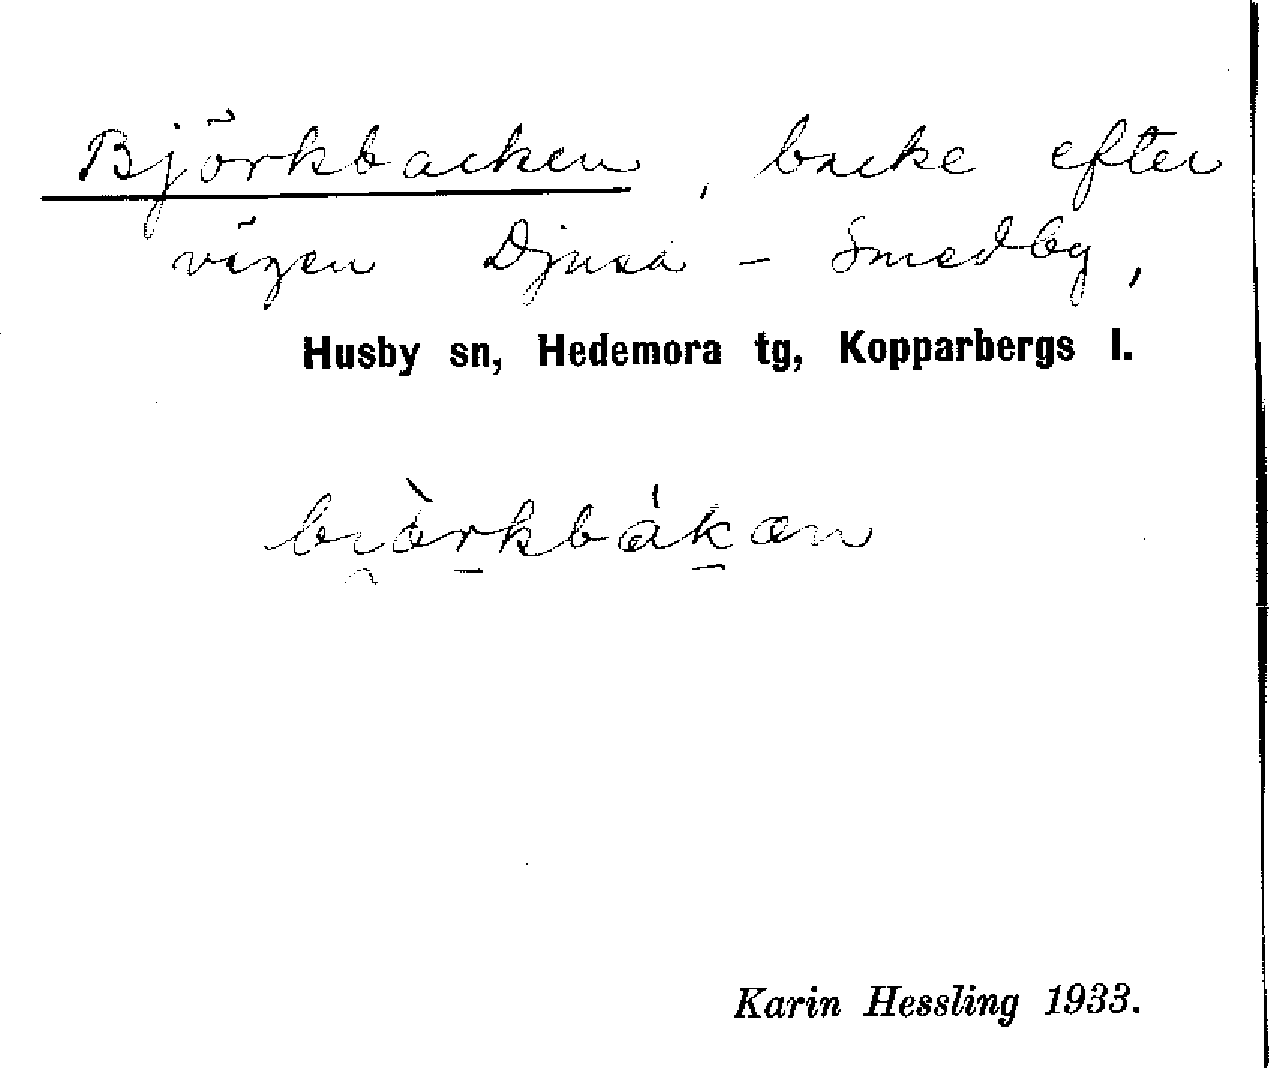 Björkbacken, backe efter
vägen Djusa – Smedby,
Husby sn, Hedemora tg, Kopparbergs l.
bi̯òr̠kbák̠æn
Karin Hessling 1933.